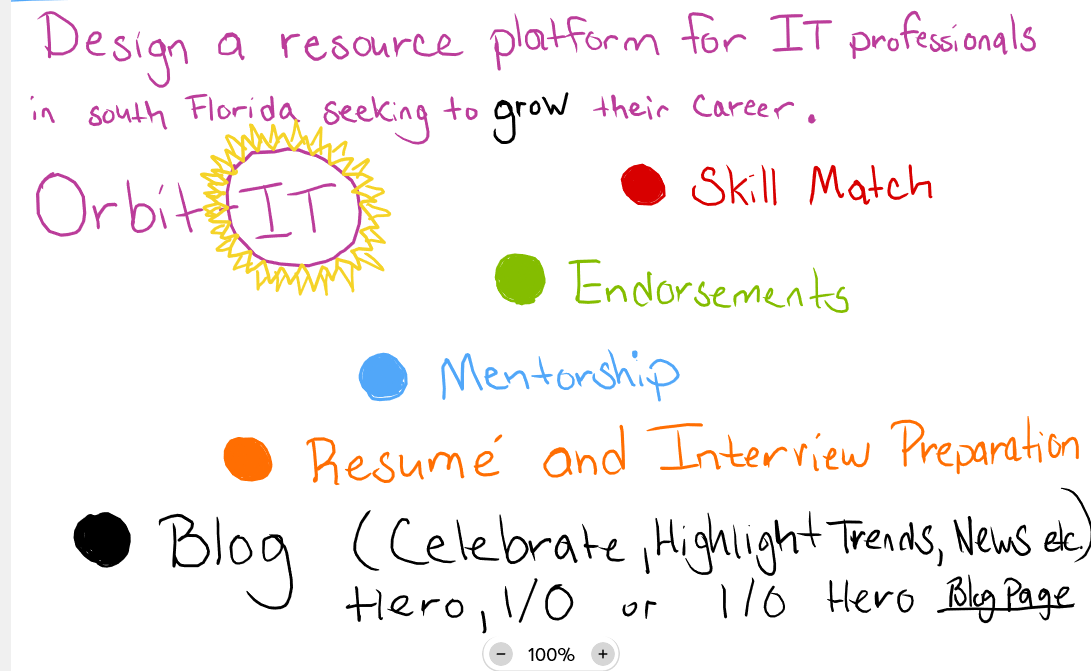 Design a resource platform for IT professionals
in south Florida seeking to grow their career.
Orbit IT
Skill Match
Endorsements
Mentorship
Resumé and Interview Preparation
Blog (Celebrate, Highlight Trends, News etc.)
Hero, 1/0 or 1/0 Hero Blog Page
− 100% +